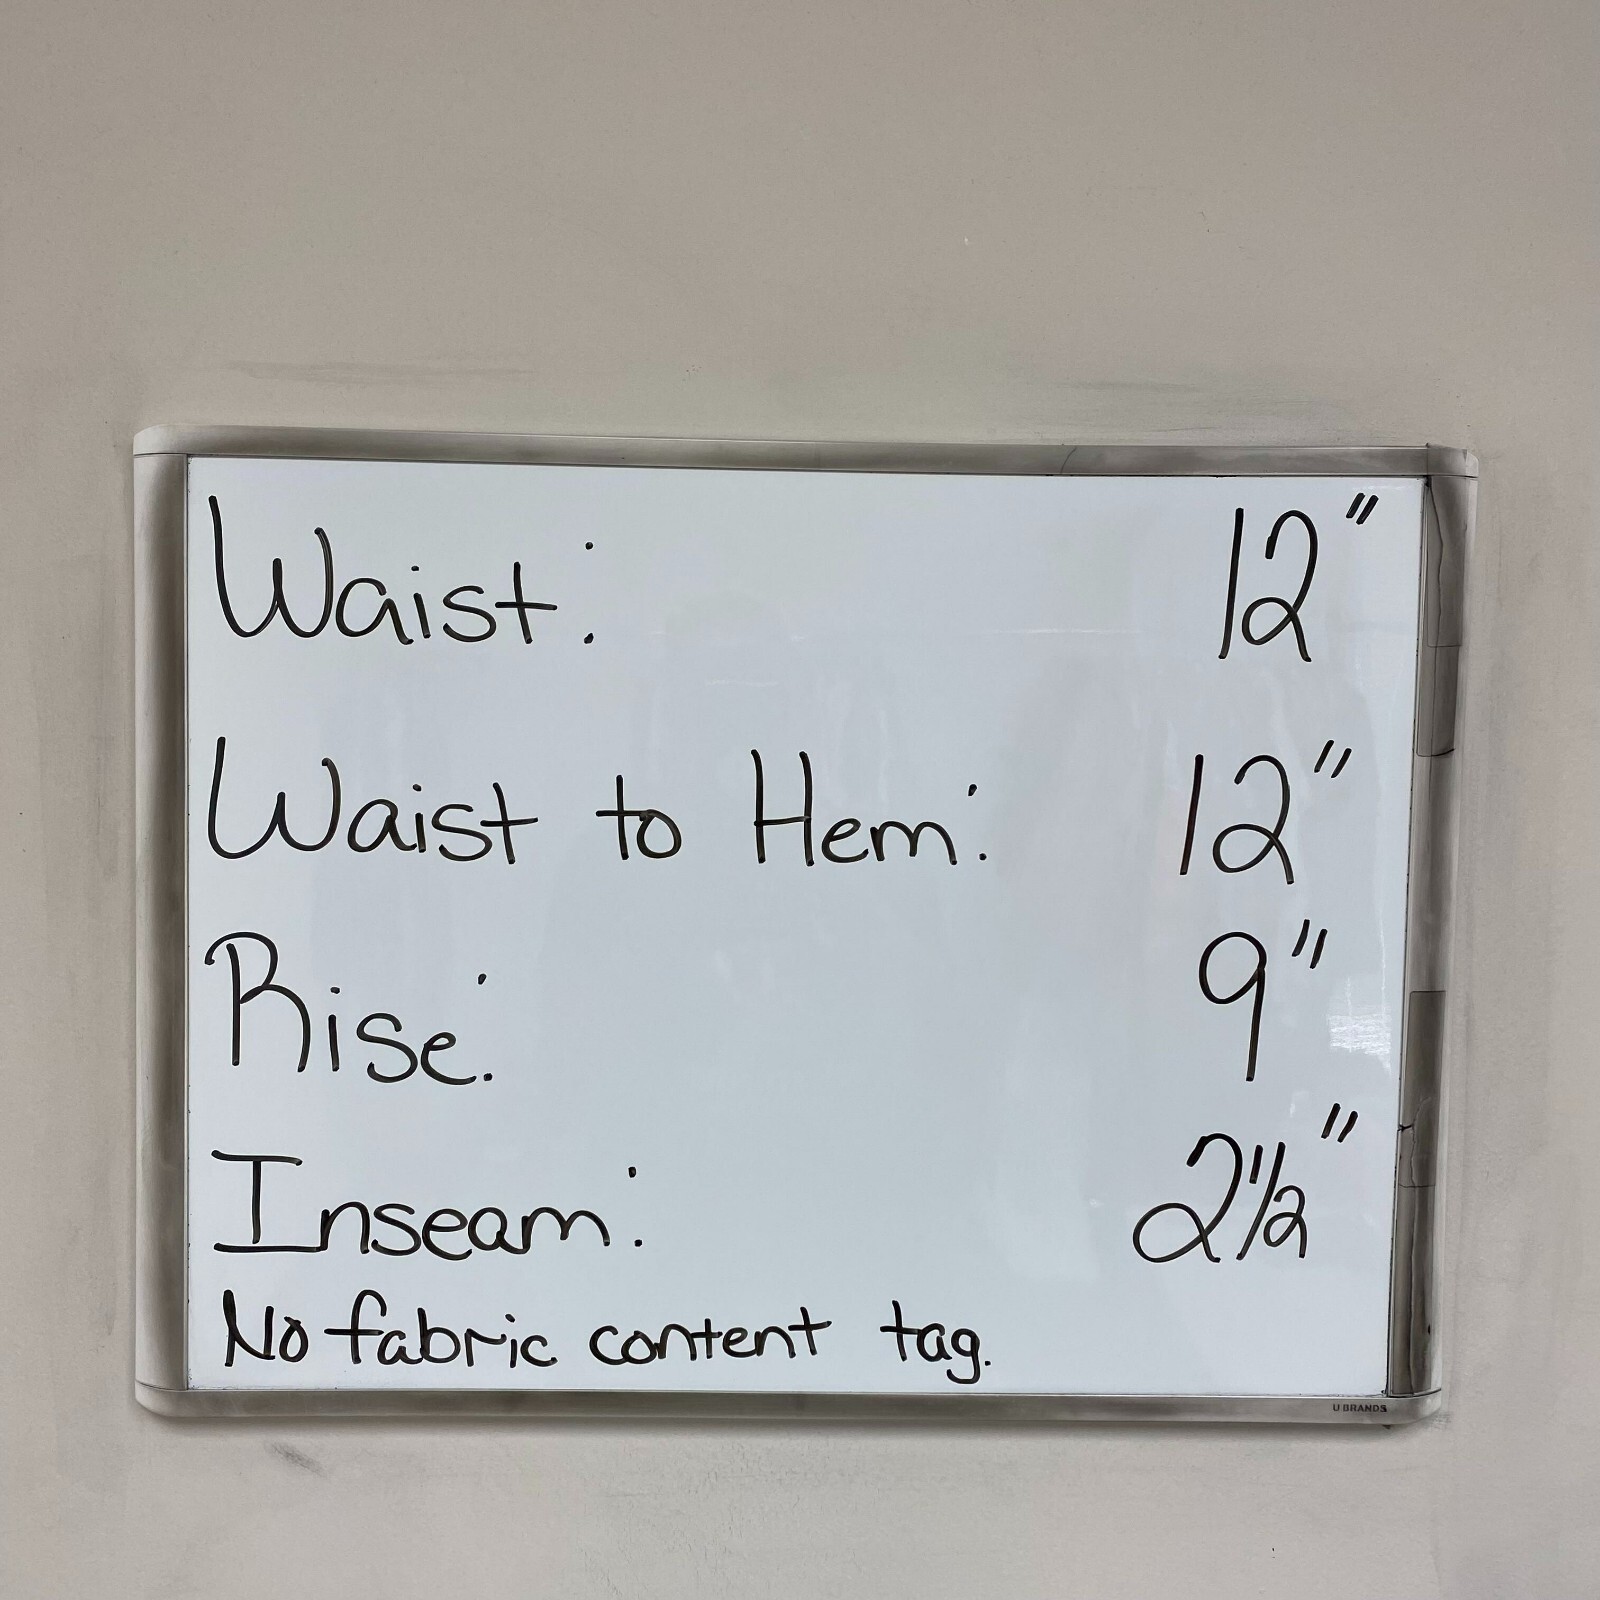 Waist: 12"
Waist to Hem: 12"
Rise: 9"
Inseam: 2½"
No fabric content tag.
U BRANDS